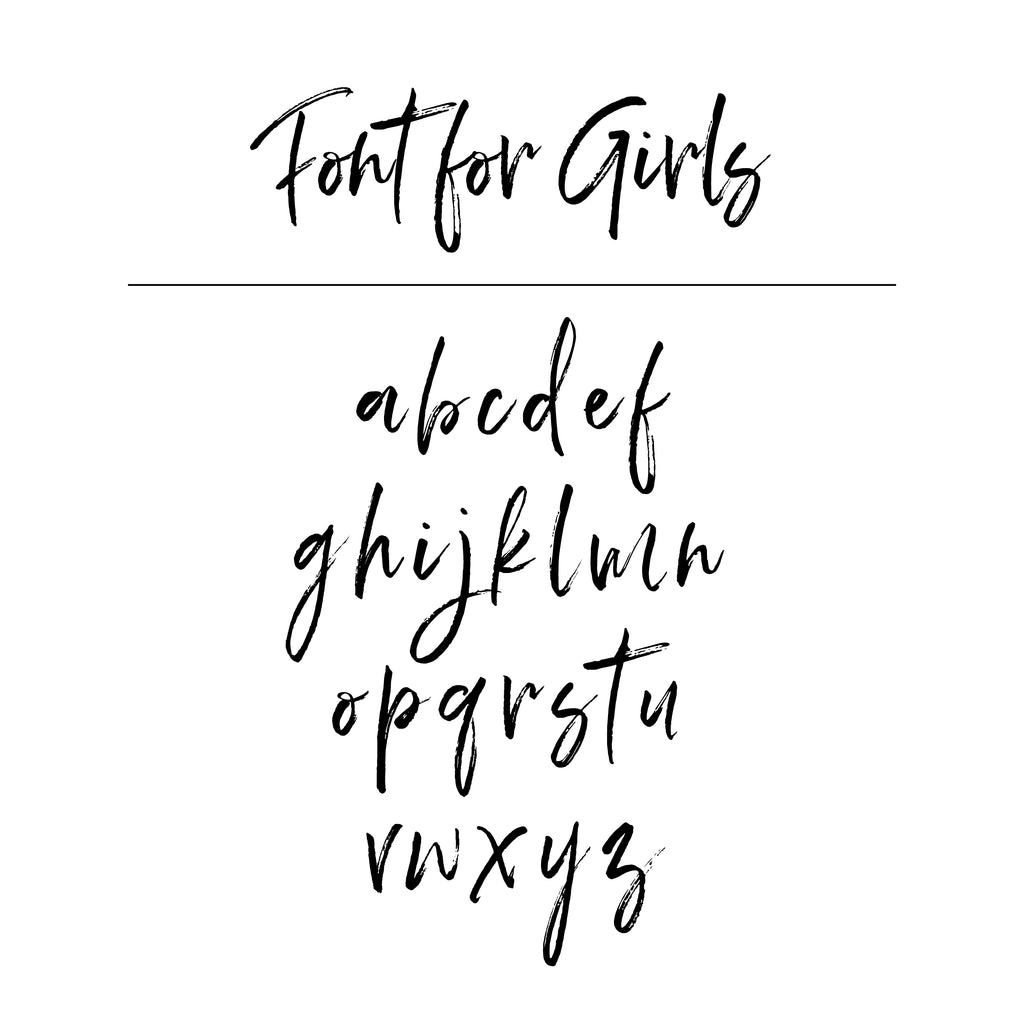 Font for Girls
abcdef
ghijklmn
opqrstu
vwxyz